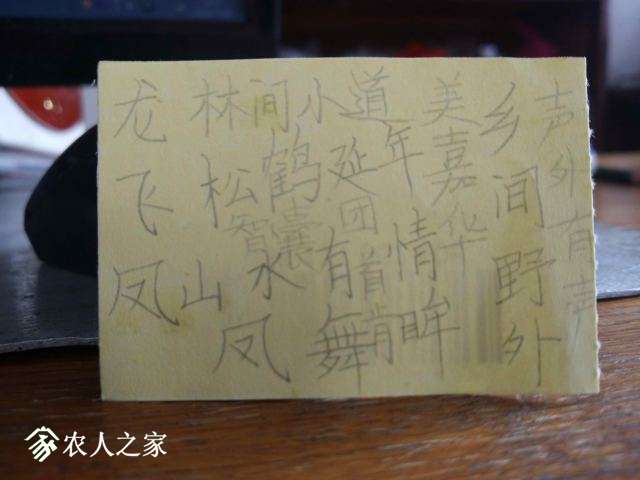 龙飞凤
林间小道
松鹤延年
智囊团
山水有情
首
凤舞
眸
美嘉华
乡间野外
声外有声
农人之家